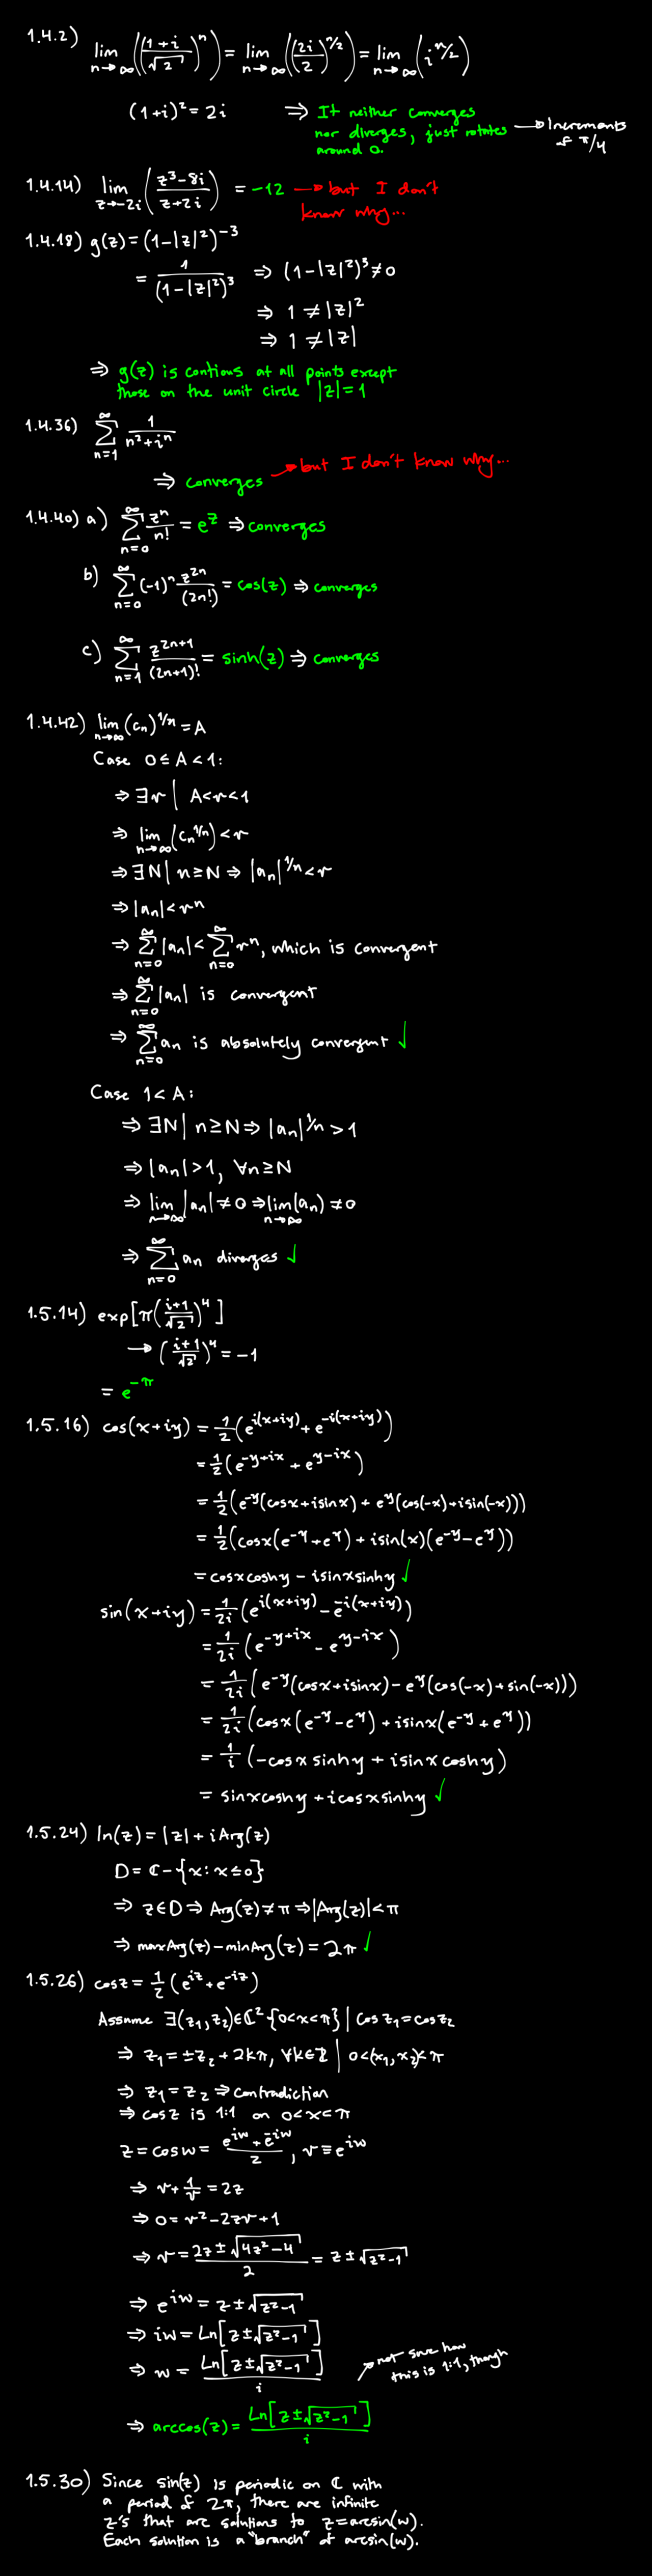 1.4.2) lim n→∞ (((1+i)/√2)^n) = lim n→∞ ((2i/2)^(n/2)) = lim n→∞ (i^(n/2))
(1+i)² = 2i ⇒ It neither converges
nor diverges, just rotates
around 0.
→ Increments
of π/4
1.4.14) lim z→-2i ((z³-8i)/(z+2i)) = -12 → but I don't
know why...
1.4.18) g(z) = (1-|z|²)^-3
= 1/(1-|z|²)³ ⇒ (1-|z|²)³ ≠ 0
⇒ 1 ≠ |z|²
⇒ 1 ≠ |z|
⇒ g(z) is contious at all points except
those on the unit circle |z|=1
1.4.36) ∑ n=1 ∞ 1/(n²+i^n)
⇒ converges → but I don't know why...
1.4.40) a) ∑ n=0 ∞ z^n/n! = e^z ⇒ converges
b) ∑ n=0 ∞ (-1)^n z^2n/(2n!) = cos(z) ⇒ converges
c) ∑ n=1 ∞ z^(2n+1)/(2n+1)! = sinh(z) ⇒ converges
1.4.42) lim n→∞ (cₙ)^1/n = A
Case 0 ≤ A < 1:
⇒ ∃r | A<r<1
⇒ lim n→∞ (cₙ^1/n) < r
⇒ ∃N | n≥N ⇒ |aₙ|^1/n < r
⇒ |aₙ| < r^n
⇒ ∑ n=0 ∞ |aₙ| < ∑ n=0 ∞ r^n, which is convergent
⇒ ∑ n=0 ∞ |aₙ| is convergent
⇒ ∑ n=0 ∞ aₙ is absolutely convergent ✓
Case 1 < A:
⇒ ∃N | n≥N ⇒ |aₙ|^1/n > 1
⇒ |aₙ| > 1, ∀n≥N
⇒ lim n→∞ |aₙ| ≠ 0 ⇒ lim n→∞ (aₙ) ≠ 0
⇒ ∑ n=0 ∞ aₙ diverges ✓
1.5.14) exp[π((i+1)/√2)⁴]
→ ((i+1)/√2)⁴ = -1
= e^-π
1.5.16) cos(x+iy) = 1/2 (e^i(x+iy) + e^-i(x+iy))
= 1/2 (e^(-y+ix) + e^(y-ix))
= 1/2 (e^-y(cosx+isinx) + e^y(cos(-x)+isin(-x)))
= 1/2 (cosx(e^-y+e^y) + isin(x)(e^-y-e^y))
= cosxcoshy - isinxsinhy ✓
sin(x+iy) = 1/2i (e^i(x+iy) - e^-i(x+iy))
= 1/2i (e^(-y+ix) - e^(y-ix))
= 1/2i (e^-y(cosx+isinx) - e^y(cos(-x)+sin(-x)))
= 1/2i (cosx(e^-y-e^y) + isinx(e^-y+e^y))
= 1/i (-cosx sinhy + isinx coshy)
= sinxcoshy + icosxsinhy ✓
1.5.24) ln(z) = |z| + iArg(z)
D = ℂ - {x: x≤0}
⇒ z∈D ⇒ Arg(z) ≠ π ⇒ |Arg(z)| < π
⇒ maxArg(z) - minArg(z) = 2π ✓
1.5.26) cosz = 1/2 (e^iz + e^-iz)
Assume ∃(z₁,z₂)∈ℂ²{0<x<π} | cosz₁=cosz₂
⇒ z₁ = ±z₂ + 2kπ, ∀k∈ℤ | 0<(x₁,x₂)<π
⇒ z₁ = z₂ ⇒ contradiction
⇒ cosz is 1:1 on 0<x<π
z = cosw = (e^iw + e^-iw)/2, v ≡ e^iw
⇒ v + 1/v = 2z
⇒ 0 = v² - 2zv + 1
⇒ v = (2z ± √(4z²-4))/2 = z ± √(z²-1)
⇒ e^iw = z ± √(z²-1)
⇒ iw = Ln[z ± √(z²-1)]
⇒ w = Ln[z ± √(z²-1)]/i
→ not sure how
this is 1:1, though
⇒ arccos(z) = Ln[z ± √(z²-1)]/i
1.5.30) Since sin(z) is periodic on ℂ with
a period of 2π, there are infinite
z's that are solutions to z=arcsin(w).
Each solution is a "branch" of arcsin(w).